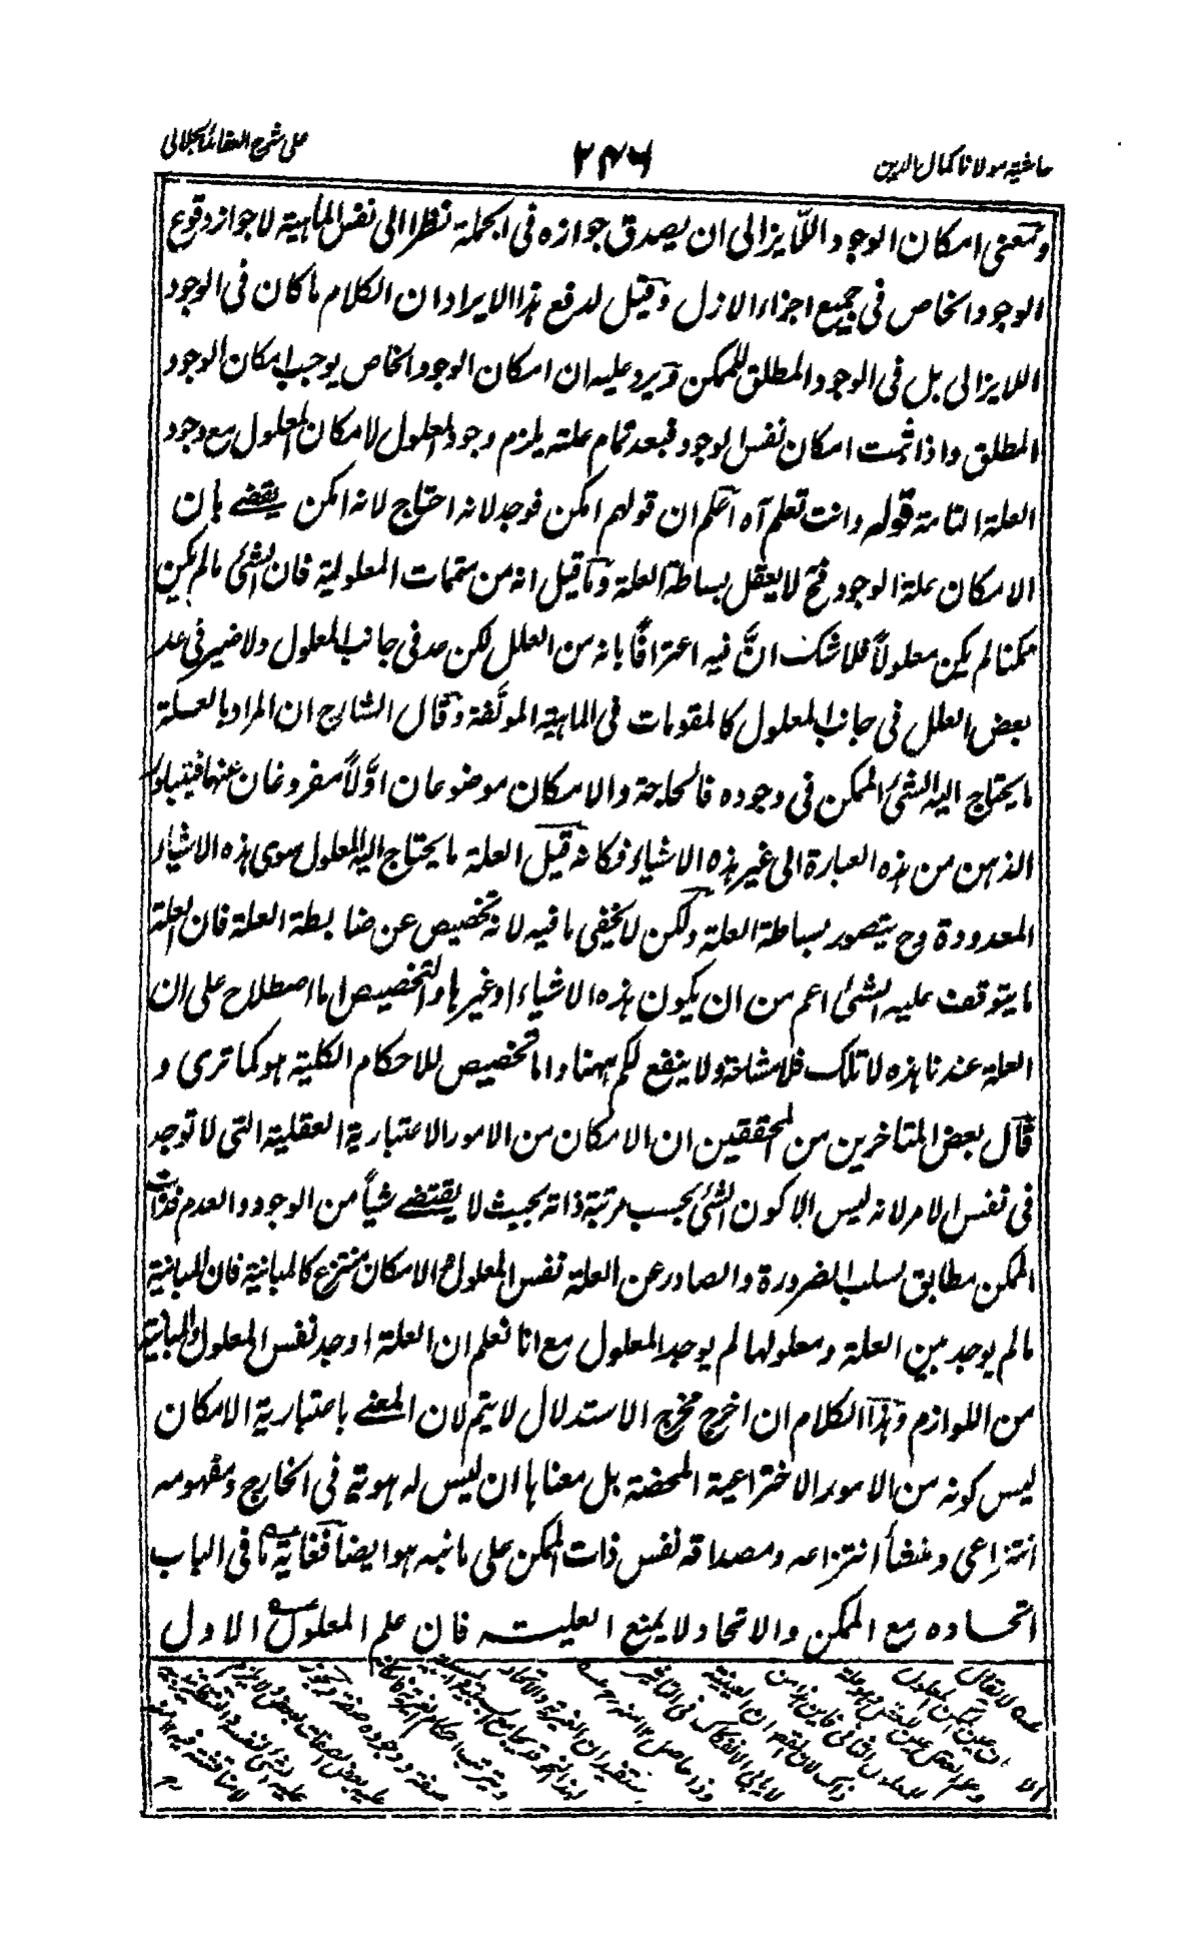 حاشية مولانا كمال الدين ٢٤٦ على شرح العقائد الجلالي
ومعنى امكان الوجود اللايزالى ان يصدق جوازه فى الجملة نظرا الى نفس الماهية لا جواز وقوع
الوجود الخاص فى جميع اجزاء الازل وقيل لدفع هذا الايراد ان الكلام ما كان فى الوجود
اللايزالى بل فى الوجود المطلق للممكن ويرد عليه ان امكان الوجود الخاص يوجب امكان الوجود
المطلق واذا ثبت امكان نفس الوجود فبعد تمام علته يلزم وجود المعلول لامكان المعلول مع وجود
العلة التامة قوله وانت تعلم آه اعلم ان قولهم امكن فوجد لانه احتاج لانه امكن يقضے بان
الامكان علة الوجود فح لا يعقل بساطة العلة وما قيل انه من متممات المعلولية فان الشئ مالم يكن
ممكنا لم يكن معلولاً فلاشك انّ فيه اعترافًا بانه من العلل لكن عد فى جانب المعلول ولا ضير فى عد
بعض العلل فى جانب المعلول كالمقومات فى الماهية المولّفة وقال الشارح ان المراد بالعلة
ما يحتاج اليه الشئ الممكن فى وجوده فالحاجة والامكان موضوعان اوّلاً مفروغان عنها فيتبادر
الذهن من هذه العبارة الى غير هذه الاشياء فكانه قيل العلة ما يحتاج اليه المعلول سوى هذه الاشياء
المعدودة وح يتصور بساطة العلة ولكن لا يخفى ما فيه لانه تخصيص عن ضابطة العلة فان العلة
ما يتوقف عليه الشئ اعم من ان يكون هذه الاشياء او غيرها والتخصيص اما اصطلاح على ان
العلة عندنا هذه لا تلك فلا مشاحة ولا ينفع لكم ههنا واما تخصيص للاحكام الكلية هو كما ترى و
قال بعض المتاخرين من المحققين ان الامكان من الامور الاعتبارية العقلية التى لا توجد
فى نفس الامر لانه ليس الا كون الشئ بحسب مرتبة ذاته بحيث لا يقتضے شيأً من الوجود والعدم فذات
الممكن مطابق لسلب الضرورة والصادر عن العلة نفس المعلول والامكان منتزع كالمباينة فان المباينة
مالم يوجد بين العلة ومعلولها لم يوجد المعلول مع انا نعلم ان العلة اوجد نفس المعلول والمباينة
من اللوازم وهذا الكلام ان اخرج مخرج الاستدلال لا يتم لان المعنے باعتبارية الامكان
ليس كونه من الامور الاختراعية المحضة بل معناها ان ليس له هوية فى الخارج ومفهومه
انتزاعى ومنشأ انتزاعه ومصداقه نفس ذات الممكن على ما نبه هو ايضا فغاية ما فى الباب
اتحاده مع الممكن والاتحاد لا يمنع العلية فان علم المعلول الاول